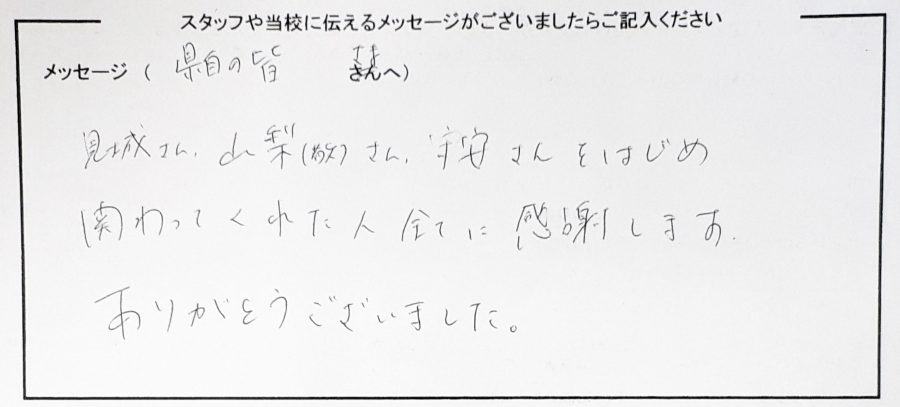 スタッフや当校に伝えるメッセージがございましたらご記入ください
メッセージ ( 県自の皆 さま さんへ)
見城さん、山梨(敏)さん、守安さんをはじめ
関わってくれた人全てに感謝します.
ありがとうございました。